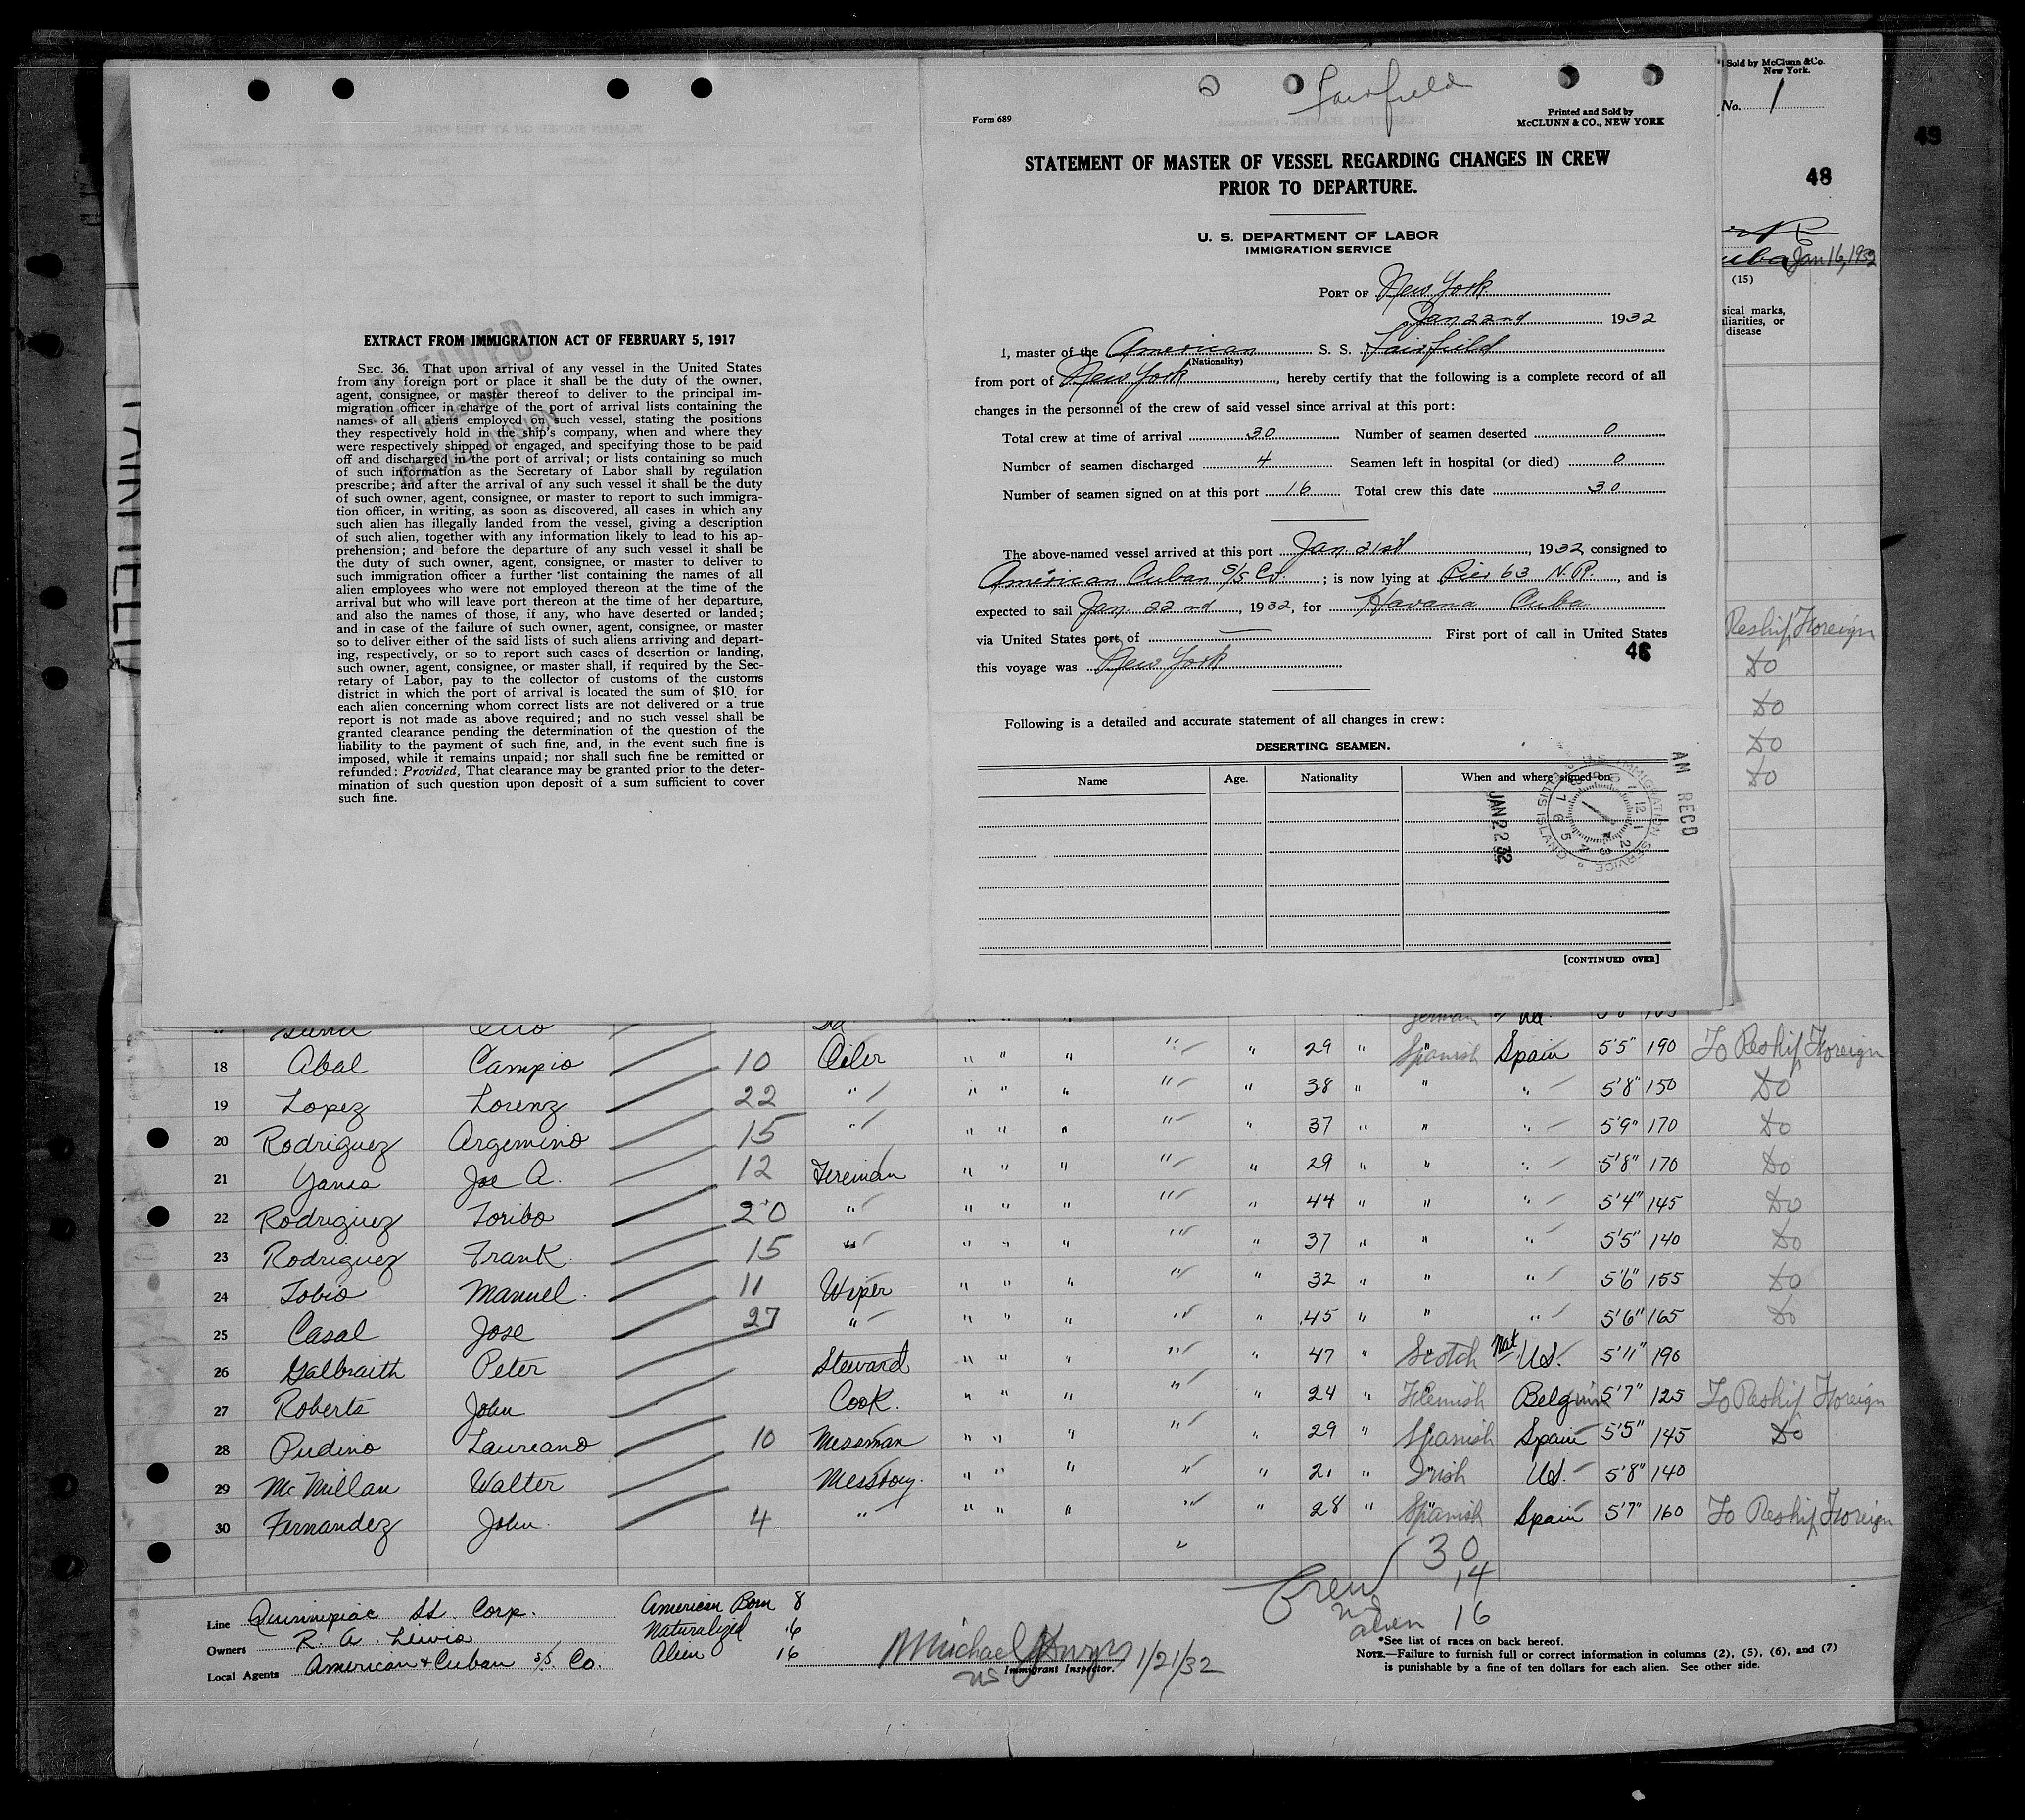 Fairfield
Form 689
Printed and Sold by
McCLUNN & CO., NEW YORK
STATEMENT OF MASTER OF VESSEL REGARDING CHANGES IN CREW
PRIOR TO DEPARTURE.
U. S. DEPARTMENT OF LABOR
IMMIGRATION SERVICE
PORT OF New York
Jan 22nd 1932
I, master of the American S. S. Fairfield
(Nationality)
from port of New York, hereby certify that the following is a complete record of all
changes in the personnel of the crew of said vessel since arrival at this port:
Total crew at time of arrival 30 Number of seamen deserted 0
Number of seamen discharged 4 Seamen left in hospital (or died) 0
Number of seamen signed on at this port 16 Total crew this date 30
The above-named vessel arrived at this port Jan 21st, 1932, consigned to
American Cuban S/S Co.; is now lying at Pier 63 N.R., and is
expected to sail Jan 22nd, 1932, for Havana Cuba
via United States port of First port of call in United States
this voyage was New York
Following is a detailed and accurate statement of all changes in crew:
DESERTING SEAMEN.
Name Age. Nationality When and where signed on
JAN 22 32
AM RECD
U.S. IMMIGRATION SERVICE
ELLIS ISLAND
[CONTINUED OVER]
RECEIVED
EXTRACT FROM IMMIGRATION ACT OF FEBRUARY 5, 1917
SEC. 36. That upon arrival of any vessel in the United States
from any foreign port or place it shall be the duty of the owner,
agent, consignee, or master thereof to deliver to the principal im-
migration officer in charge of the port of arrival lists containing the
names of all aliens employed on such vessel, stating the positions
they respectively hold in the ship's company, when and where they
were respectively shipped or engaged, and specifying those to be paid
off and discharged in the port of arrival; or lists containing so much
of such information as the Secretary of Labor shall by regulation
prescribe; and after the arrival of any such vessel it shall be the duty
of such owner, agent, consignee, or master to report to such immigra-
tion officer, in writing, as soon as discovered, all cases in which any
such alien has illegally landed from the vessel, giving a description
of such alien, together with any information likely to lead to his ap-
prehension; and before the departure of any such vessel it shall be
the duty of such owner, agent, consignee, or master to deliver to
such immigration officer a further list containing the names of all
alien employees who were not employed thereon at the time of the
arrival but who will leave port thereon at the time of her departure,
and also the names of those, if any, who have deserted or landed;
and in case of the failure of such owner, agent, consignee, or master
so to deliver either of the said lists of such aliens arriving and depart-
ing, respectively, or so to report such cases of desertion or landing,
such owner, agent, consignee, or master shall, if required by the Sec-
retary of Labor, pay to the collector of customs of the customs
district in which the port of arrival is located the sum of $10 for
each alien concerning whom correct lists are not delivered or a true
report is not made as above required; and no such vessel shall be
granted clearance pending the determination of the question of the
liability to the payment of such fine, and, in the event such fine is
imposed, while it remains unpaid; nor shall such fine be remitted or
refunded: Provided, That clearance may be granted prior to the deter-
mination of such question upon deposit of a sum sufficient to cover
such fine.
Sold by McClunn & Co.
New York.
No. 1
49
48
uba Jan 16, 1932
(15)
sical marks,
iliarities, or
disease
Reship Foreign
Do
Do
Do
Do
18 Abal Campio 10 Oiler " " " " " 29 " Spanish Spain 5'5" 190 To Reship Foreign
19 Lopez Lorenz 22 " " " " " " 38 " " " 5'8" 150 Do
20 Rodriguez Argemino 15 " " " " " " 37 " " " 5'9" 170 Do
21 Yanes Joe A. 12 Fireman " " " " " 29 " " " 5'8" 170 Do
22 Rodriguez Toribo 20 " " " " " " 44 " " " 5'4" 145 Do
23 Rodriguez Frank 15 " " " " " " 37 " " " 5'5" 140 Do
24 Tobio Manuel 11 Wiper " " " " " 32 " " " 5'6" 155 Do
25 Casal Jose 27 " " " " " " 45 " " " 5'6" 165 Do
26 Galbraith Peter Steward " " " " " 47 " Scotch Nat. U.S. 5'11" 190
27 Roberts John Cook. " " " " " 24 " Flemish Belgium 5'7" 125 To Reship Foreign
28 Pudino Laureano 10 Messman " " " " " 29 " Spanish Spain 5'5" 145 Do
29 McMillan Walter Messboy. " " " " " 21 " Irish U.S. 5'8" 140
30 Fernandez John 4 " " " " " " 28 " Spanish Spain 5'7" 160 To Reship Foreign
Crew 30
US 14
alien 16
Line Quinnipiac SS. Corp.
Owners R. A. Lewis
Local Agents American & Cuban S/S. Co.
American Born 8
Naturalized 6
Alien 16
Michael 1/21/32
US Immigrant Inspector.
*See list of races on back hereof.
NOTE.—Failure to furnish full or correct information in columns (2), (5), (6), and (7)
is punishable by a fine of ten dollars for each alien. See other side.